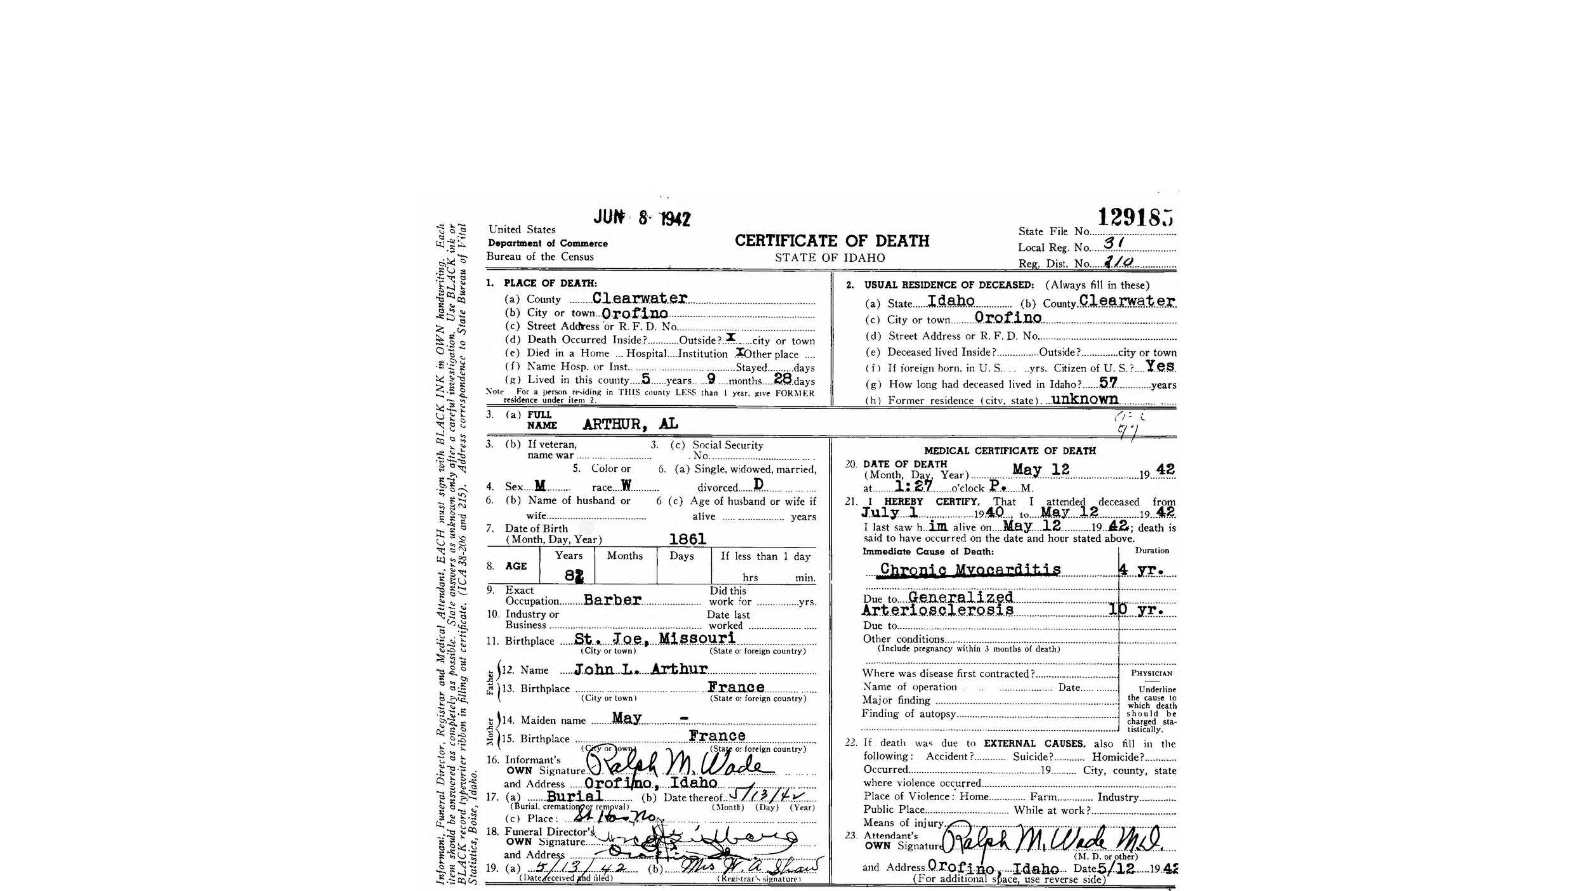 JUN 8 - 1942
129185
United States
Department of Commerce
Bureau of the Census
CERTIFICATE OF DEATH
STATE OF IDAHO
State File No.
Local Reg. No. 31
Reg. Dist. No. 210
Informant, Funeral Director, Registrar and Medical Attendant, EACH must sign with BLACK INK in OWN handwriting. Each
item should be answered as completely as possible. State answers as unknown only after a careful investigation. Use BLACK ink or
BLACK record typewriter ribbon in filling out certificate. (ICA 38-206 and 215). Address correspondence to State Bureau of Vital
Statistics, Boise, Idaho.
1. PLACE OF DEATH:
(a) County Clearwater
(b) City or town Orofino
(c) Street Address or R. F. D. No.
(d) Death Occurred Inside? Outside? X city or town
(e) Died in a Home Hospital Institution X Other place
(f) Name Hosp. or Inst. Stayed days
(g) Lived in this county 5 years 9 months 28 days
Note For a person residing in THIS county LESS than 1 year, give FORMER
residence under item 2.
2. USUAL RESIDENCE OF DECEASED: (Always fill in these)
(a) State Idaho (b) County Clearwater
(c) City or town Orofino
(d) Street Address or R. F. D. No.
(e) Deceased lived Inside? Outside? city or town
(f) If foreign born, in U. S. yrs. Citizen of U. S.? Yes
(g) How long had deceased lived in Idaho? 57 years
(h) Former residence (city, state) unknown
3. (a) FULL
NAME ARTHUR, AL
97
3. (b) If veteran, 3. (c) Social Security
name war No.
5. Color or 6. (a) Single, widowed, married,
4. Sex M race W divorced D
6. (b) Name of husband or 6 (c) Age of husband or wife if
wife alive years
7. Date of Birth
(Month, Day, Year) 1861
8. AGE Years Months Days If less than 1 day
82 hrs min.
9. Exact Did this
Occupation Barber work for yrs.
10. Industry or Date last
Business worked
11. Birthplace St. Joe, Missouri
(City or town) (State or foreign country)
Father
12. Name John L. Arthur
13. Birthplace France
(City or town) (State or foreign country)
Mother
14. Maiden name May -
15. Birthplace France
(City or town) (State or foreign country)
16. Informant's
OWN Signature Ralph M. Wade
and Address Orofino, Idaho
17. (a) Burial (b) Date thereof 5/13/42
(Burial, cremation or removal) (Month) (Day) (Year)
(c) Place:
18. Funeral Director's
OWN Signature
and Address Orofino
19. (a) 5/13/42 (b) Mrs W A Shaw
(Date received and filed) (Registrar's signature)
MEDICAL CERTIFICATE OF DEATH
20. DATE OF DEATH
(Month, Day, Year) May 12 19 42
at 1:27 o'clock P. M.
21. I HEREBY CERTIFY, That I attended deceased from
July 1 1940 to May 12 19 42
I last saw him alive on May 12 19 42; death is
said to have occurred on the date and hour stated above.
Immediate Cause of Death: Duration
Chronic Myocarditis 4 yr.
Due to Generalized
Arteriosclerosis 10 yr.
Due to
Other conditions
(Include pregnancy within 3 months of death)
Where was disease first contracted?
Name of operation Date
Major finding
Finding of autopsy
PHYSICIAN
Underline
the cause to
which death
should be
charged sta-
tistically.
22. If death was due to EXTERNAL CAUSES, also fill in the
following: Accident? Suicide? Homicide?
Occurred 19 City, county, state
where violence occurred
Place of Violence: Home Farm Industry
Public Place While at work?
Means of injury
23. Attendant's
OWN Signature Ralph M. Wade M.D.
(M. D. or other)
and Address Orofino, Idaho Date 5/12 19 42
(For additional space, use reverse side)